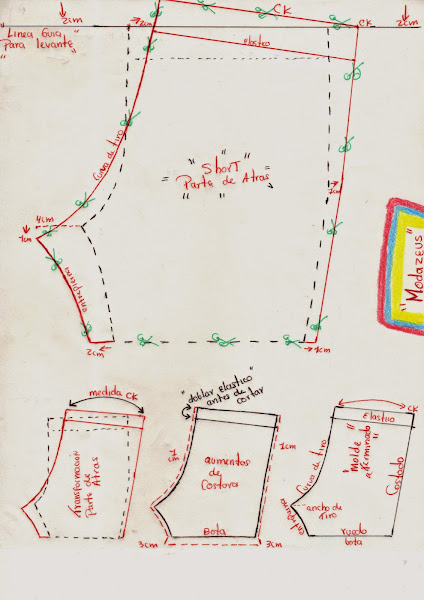 2cm
"Linea Guia
Para levante"
2cm
CK
CK
2cm
elastico
Curva de tiro
"Short"
= Parte de Atras =
1cm
4cm
1cm
entrepierna
2cm
1cm
"Modazeus"
medida CK
Transformacion
Parte de
Atras
"doblar elastico"
antes de
cortar
1cm
1cm
aumentos
de
Costura
Bota
3cm
3cm
CK
Elastico
Curva de tiro
"Molde
terminado"
Costado
ancho de
tiro
entrepierna
ruedo
bota